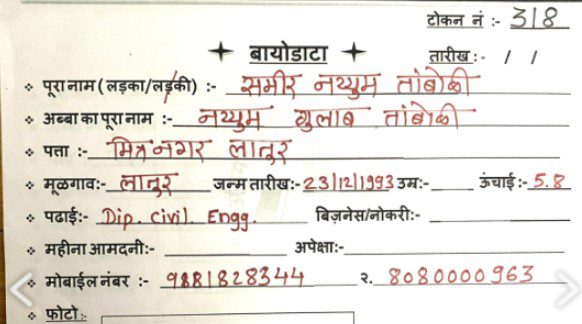 टोकन नं :- 318
बायोडाटा तारीख :- / /
पूरा नाम (लड़का/लड़की) :- समीर नय्युम तांबोळी
अब्बा का पूरा नाम :- नय्युम गुलाब तांबोळी
पता :- मित्र नगर लातूर
मूळगाव:- लातूर जन्म तारीख:- 23/12/1993 उम्र:- ऊंचाई:- 5.8
पढाई:- Dip. Civil. Engg. बिज़नेस/नोकरी:-
महीना आमदनी:- अपेक्षा:-
मोबाईल नंबर :- 9881828344 २. 8080000963
फोटो :-